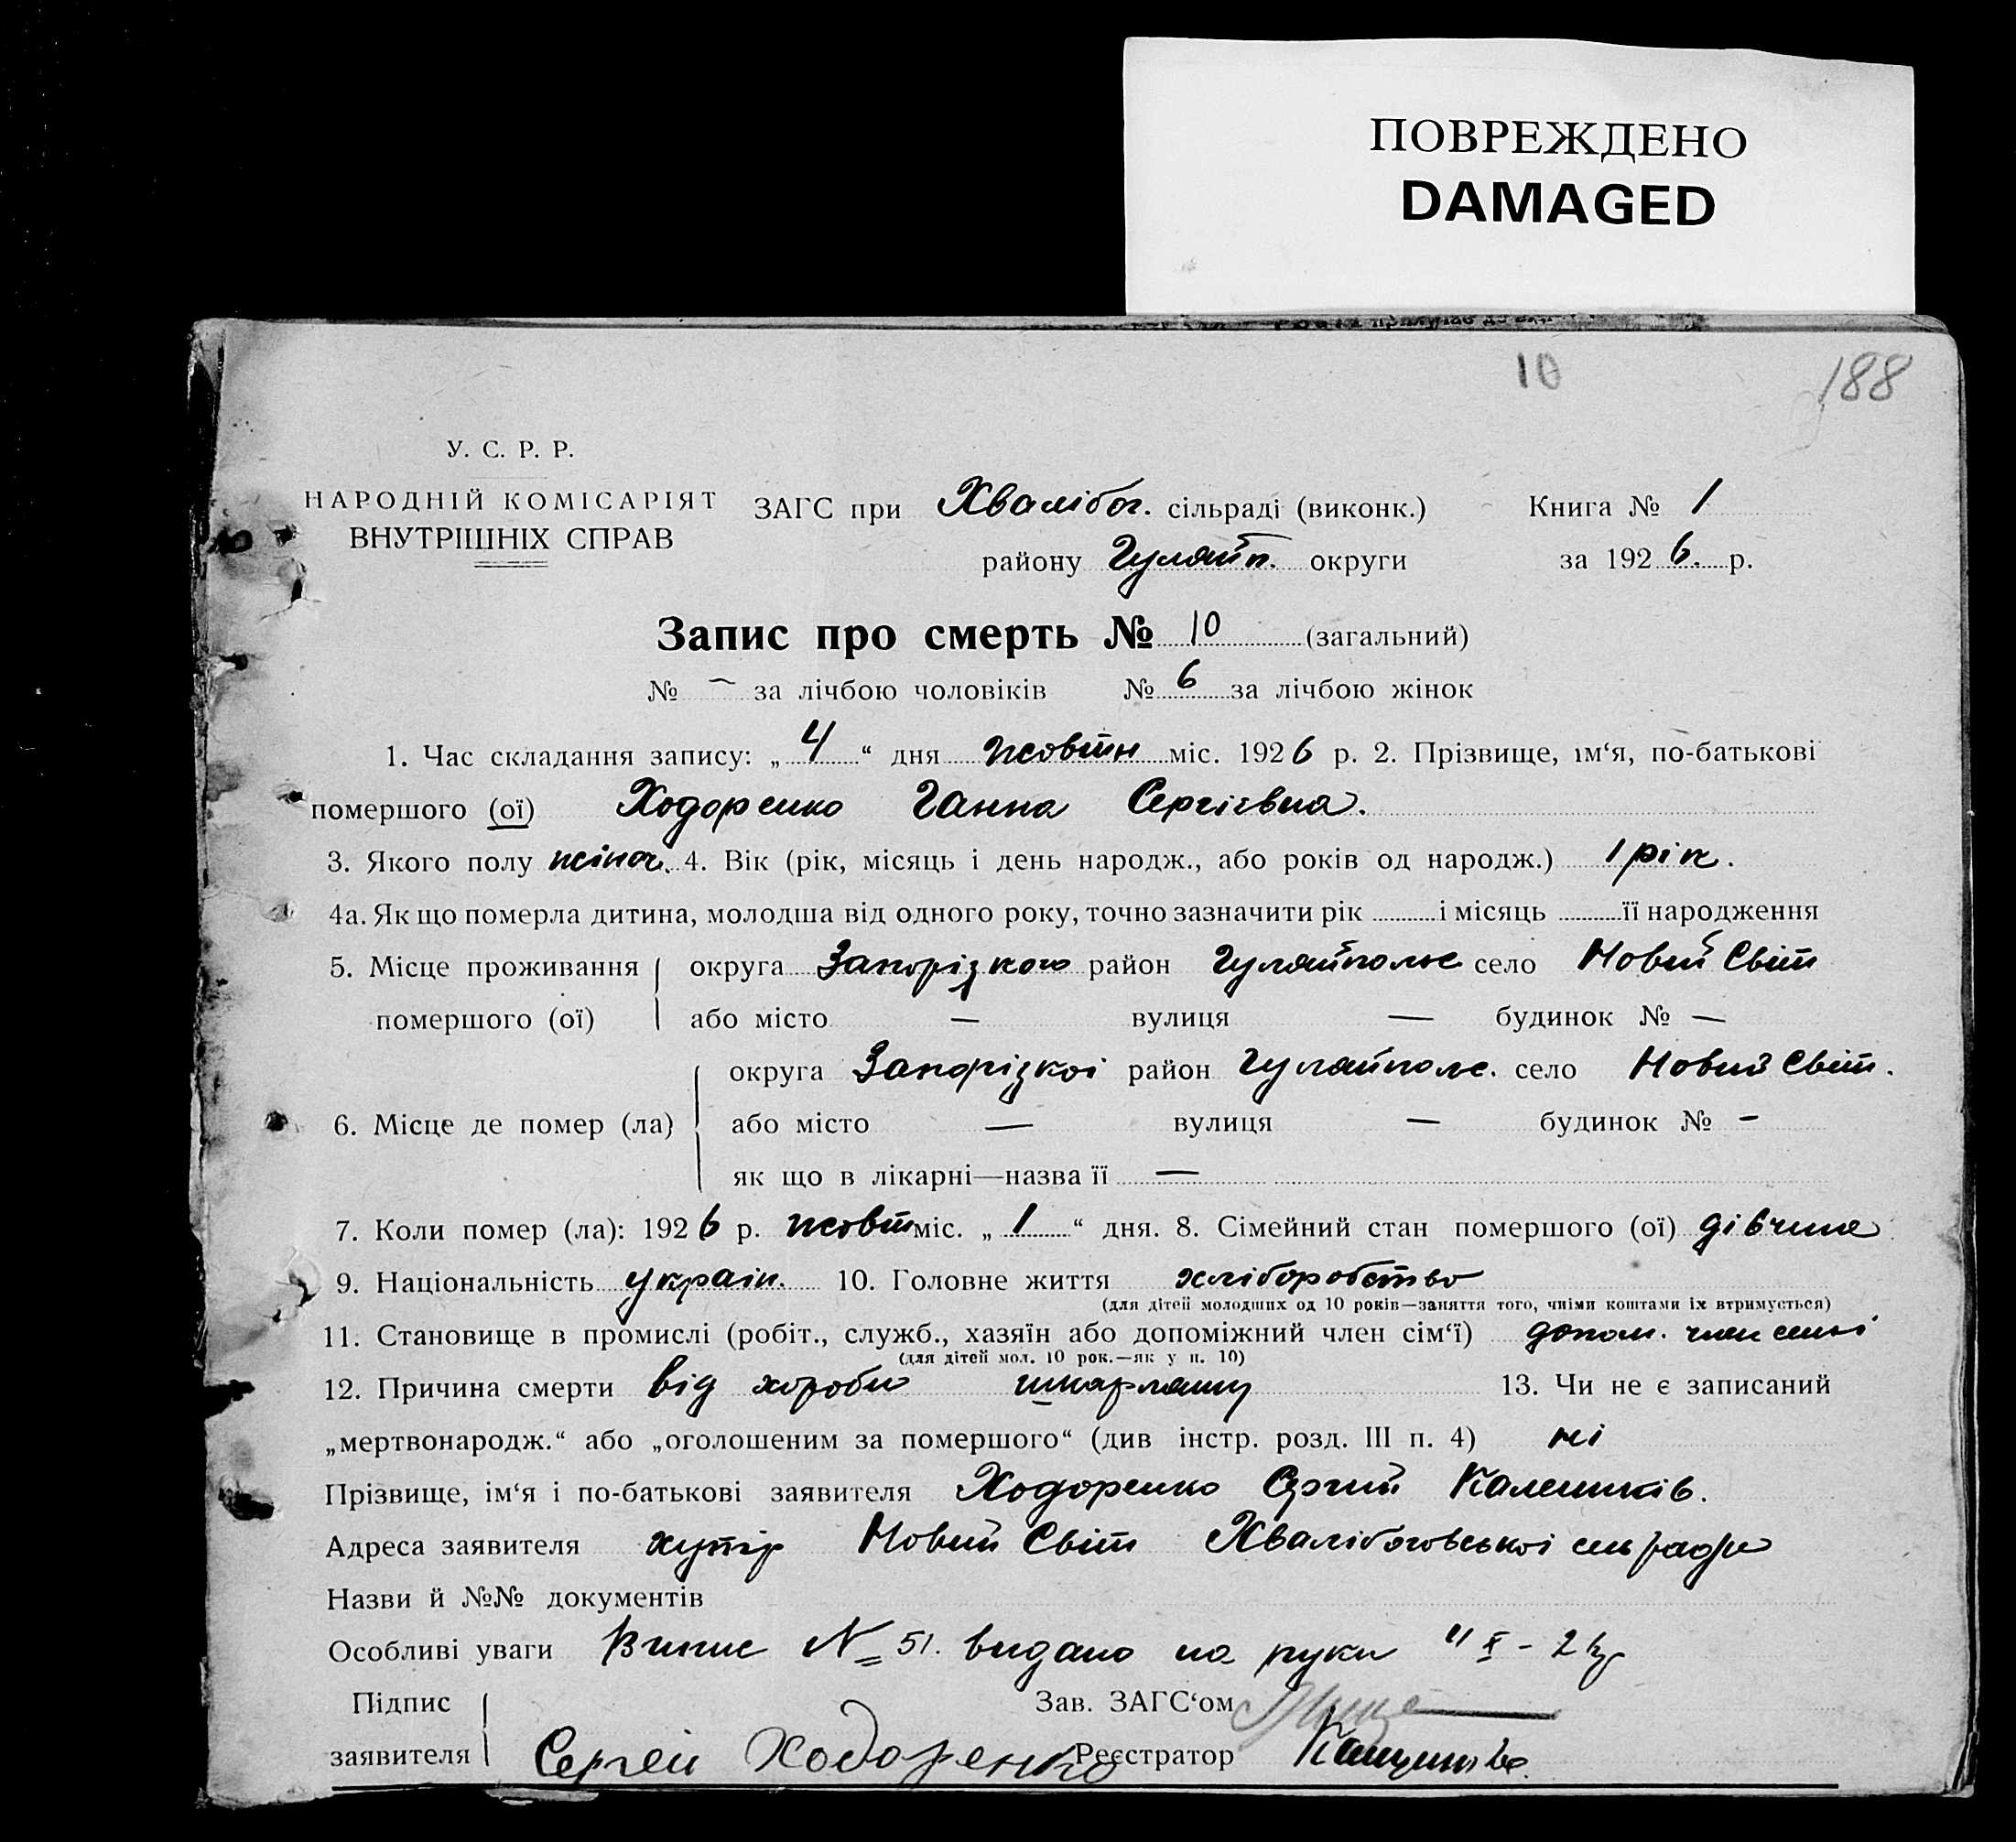 ПОВРЕЖДЕНО
DAMAGED
10 188
У. С. Р. Р.
НАРОДНІЙ КОМІСАРІЯТ
ВНУТРІШНІХ СПРАВ
ЗАГС при Хвалібог. сільраді (виконк.) Книга № 1
району Гуляйп. округи за 1926. р.
Запис про смерть № 10 (загальний)
№ – за лічбою чоловіків № 6 за лічбою жінок
1. Час складання запису: „4“ дня жовтн міс. 1926 р. 2. Прізвище, ім‘я, по-батькові
помершого (ої) Ходоренко Ганна Сергієвна.
3. Якого полу жіноч. 4. Вік (рік, місяць і день народж., або років од народж.) 1 рік.
4а. Як що померла дитина, молодша від одного року, точно зазначити рік ........ і місяць ........ її народження
5. Місце проживання помершого (ої) округа Запорізкою район Гуляйполе село Новий Світ
або місто — вулиця — будинок № —
6. Місце де помер (ла) округа Запорізкоі район Гуляйполе. село Новий Світ.
або місто — вулиця — будинок № –
як що в лікарні—назва її —
7. Коли помер (ла): 1926 р. жовт міс. „1“ дня. 8. Сімейний стан помершого (ої) дівчина
9. Національність україн. 10. Головне життя хліборобство
(для дітей молодших од 10 років—заняття того, чиїми коштами їх втримується)
11. Становище в промислі (робіт., служб., хазяїн або допоміжний член сім‘ї) допом. член семі
(для дітей мол. 10 рок.—як у п. 10)
12. Причина смерти від хороби шкарлатну 13. Чи не є записаний
„мертвонародж.“ або „оголошеним за помершого“ (див інстр. розд. III п. 4) ні
Прізвище, ім‘я і по-батькові заявителя Ходоренко Сргий
Адреса заявителя хутір Новий Світ Хвалібоговськоі
Назви й №№ документів
Особливі уваги Випис № 51. видано на руки
Підпис заявителя Сергей Ходоренко
Зав. ЗАГС‘ом
Реєстратор